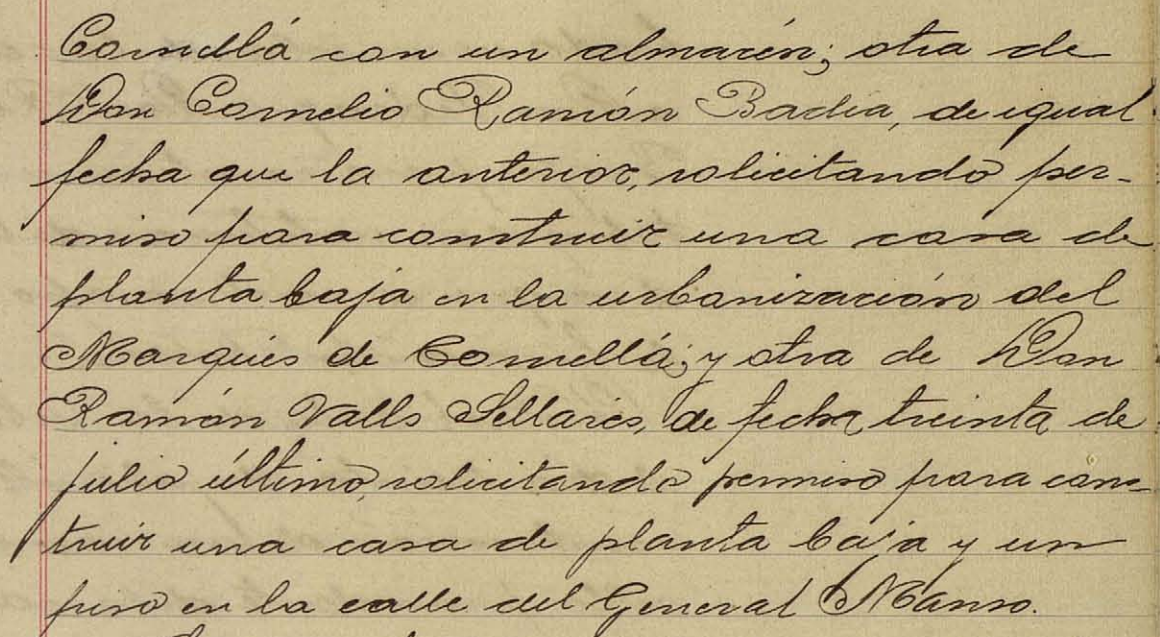 Cornellá con un almacén; otra de
Don Cornelio Ramón Badia, de igual
fecha que la anterior, solicitando per-
miso para construir una casa de
planta baja en la urbanización del
Marqués de Cornellá; y otra de Don
Ramón Valls Sellarés, de fecha treinta de
julio último, solicitando permiso para cons-
truir una casa de planta baja y un
piso en la calle del General Manso.